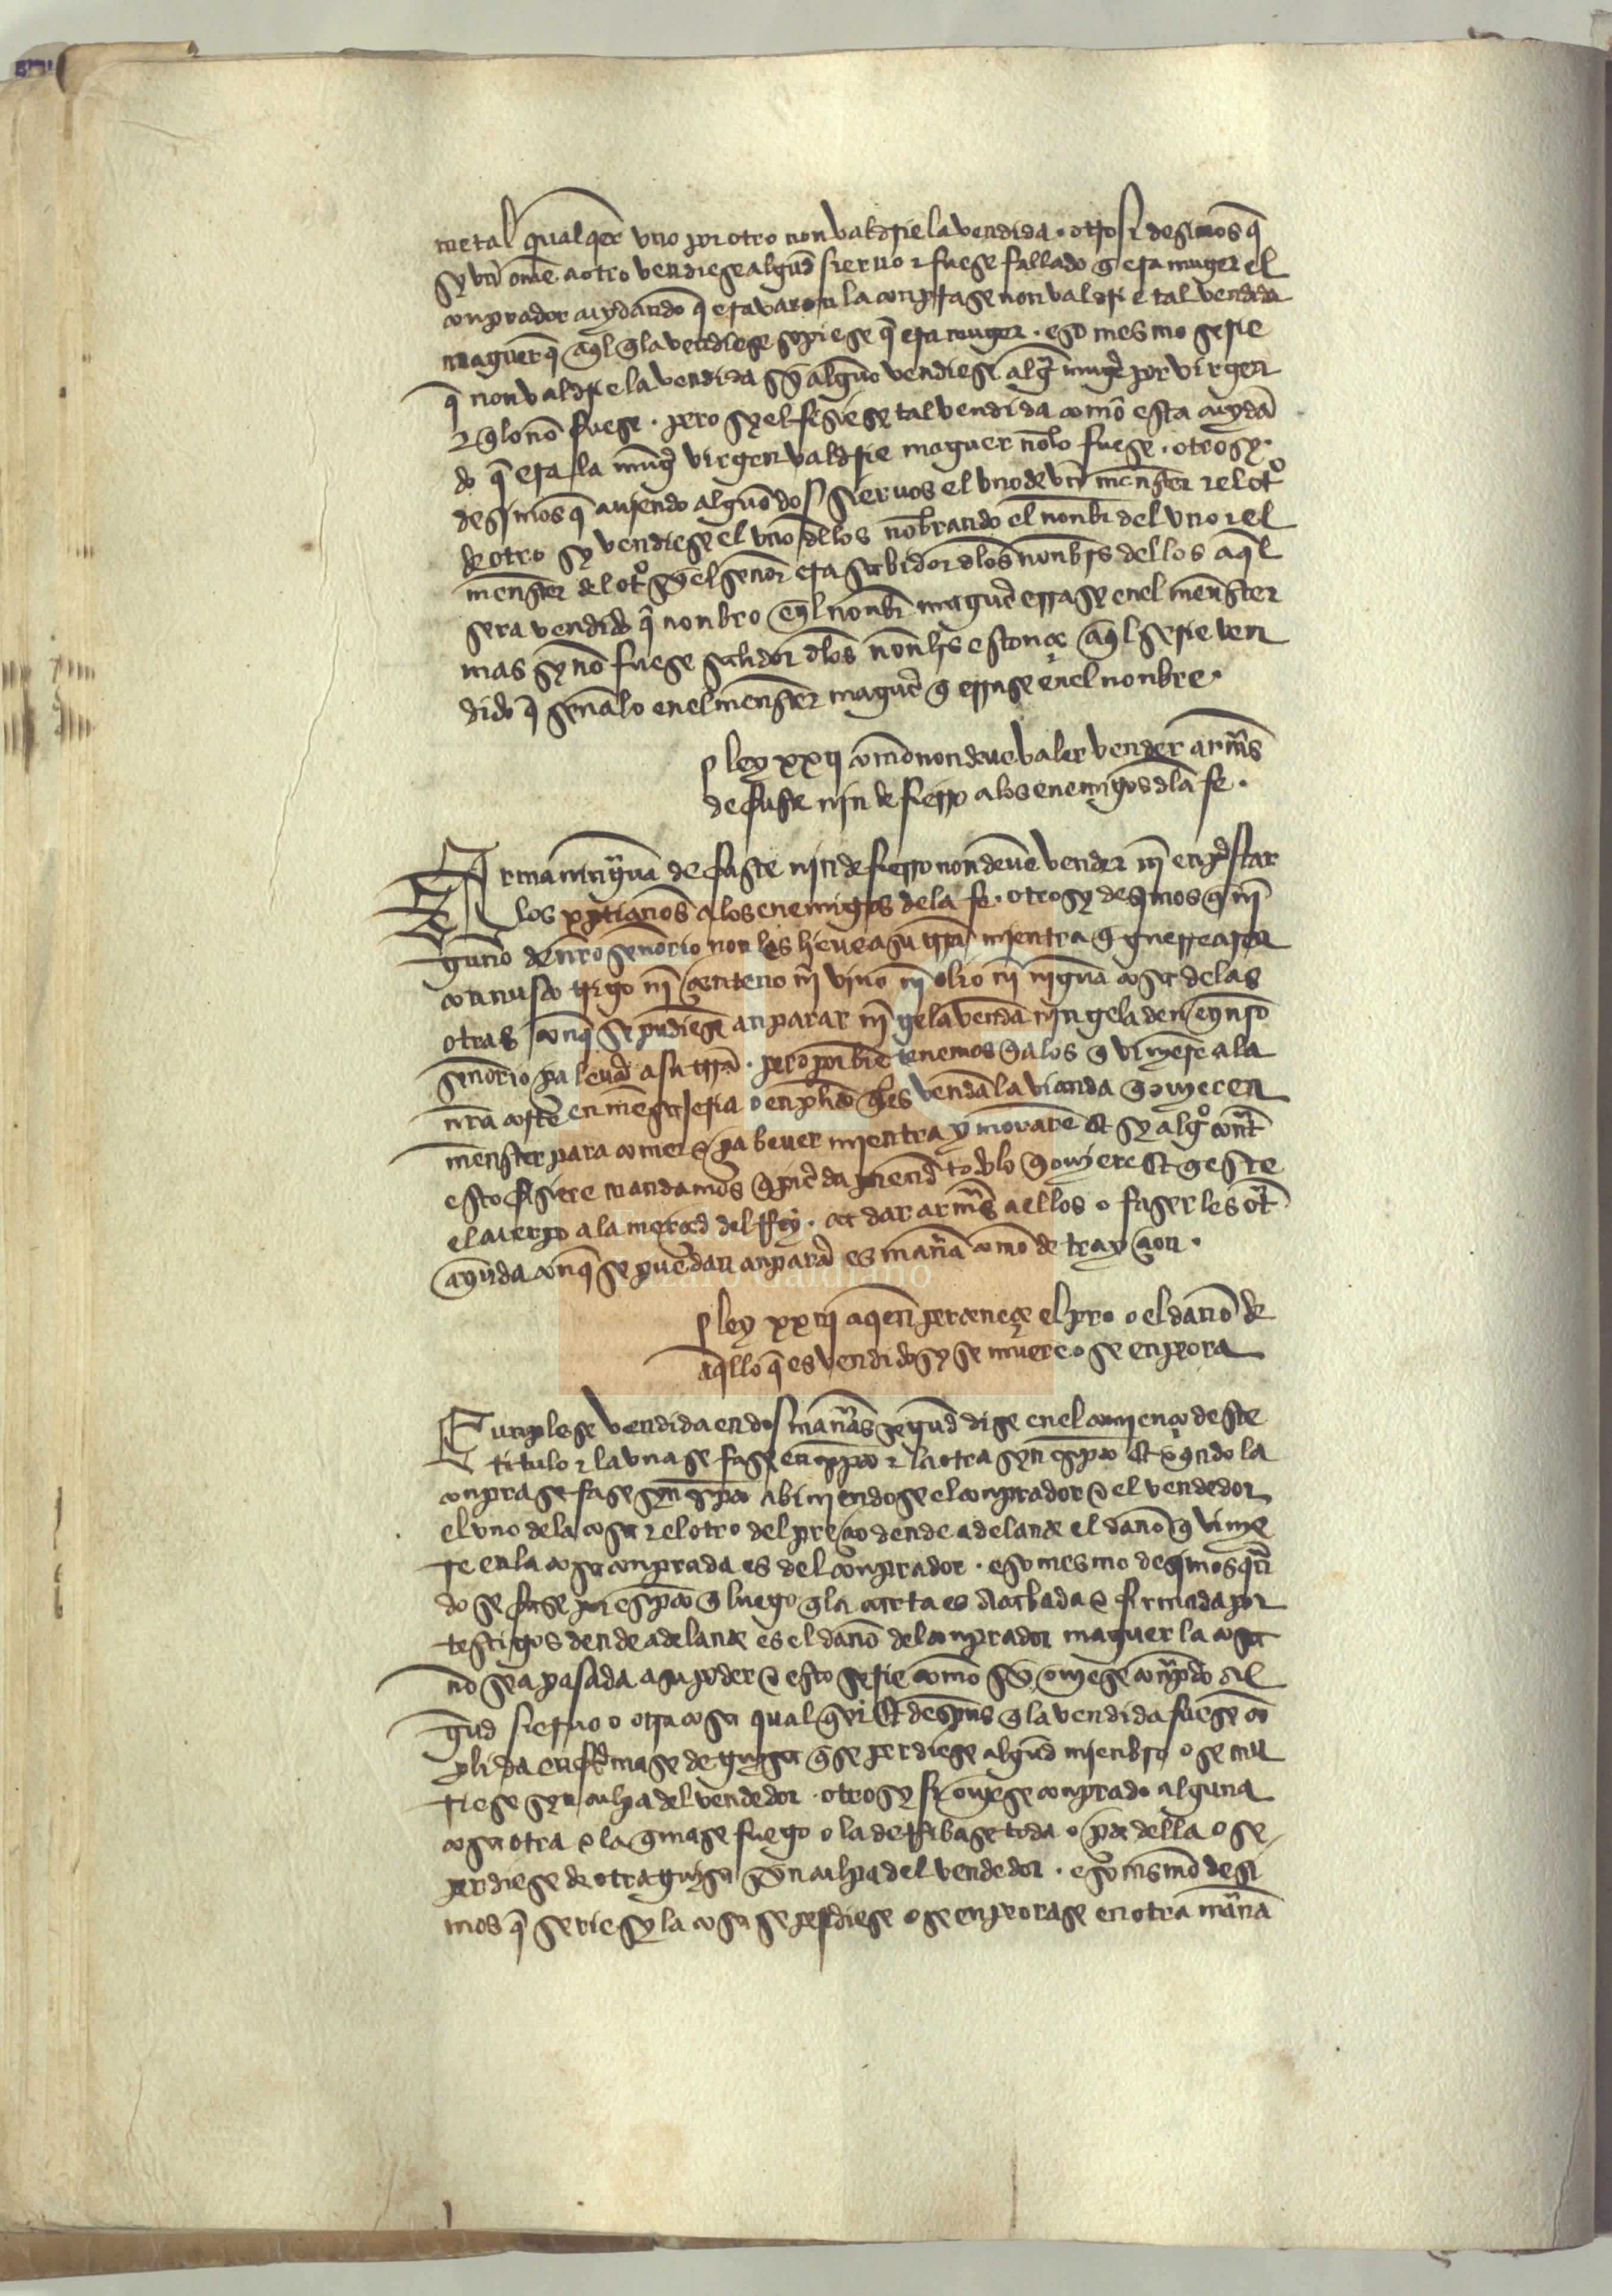 metal qualqer vno por otro non valdrie la vendida . otrosi desimos q̄
sy vn̄ ome a otro vendiese algud̄ sieruo τ fuese fallado q̄ era muger el
conprador cuydando q̄ era varon la conprase non valdrie tal vendida
maguer q̄ aql̄ q̄ la vendiese sopiese q̄ era muger . eso mesmo serie
q̄ non valdrie la vendida sy alguno vendiese alḡ muḡr por virgen
τ q̄ lo no fuese . pero sy el fisiese tal vendida como esta cuydā
do q̄ era la muḡr virgen valdrie maguer nōlo fuese . otrosy
desimos q̄ auiendo alguno dos sieruos el vno de vn̄ mēester τ el otº
de otro sy vendiese el vno dellos nōbrando el nonbr̄ del vno τ el
mēester del otº sy el señor era sabidor dlos nonbrs dellos aql̄
sera vendido q̄ nonbro enl nonbr̄ maguer̄ errase enel mēester
mas sy nō fuese sabidor dlos nōnbrs estonçe aql̄ serie ven
dido q̄ señalo enel mēester maguer̄ q̄ errase enel nonbre .
ley xxij como non deue valer vender armas̄
de fuste nin de fierro a los enemigos dla fe .
Arma ninguā de fuste nin de fierro non deue vender nī enprestar
los xp̄ianos a los enemigos de la fe . otrosy desimos q̄ nī
guno de nr̄o señorio non les lieue a su trr̄a mientra q̄ guerrearen
con nusco trigo nī çenteno nī vino nī olio nī niguna cosa de las
otras con q̄ se pudiesē anparar nī gela vendā nin gela den en nr̄o
señorio pa leuar̄ a su trr̄a . pero por bie tenemos q̄ a los q̄ vinierē a la
nr̄a corte en mēsajeria o en pl̄ito q̄les vendā la vianda q̄ ouieren
mēster para comer τ pa beuer mientra y morarē Et sy algº contra
esto fisiere mandamos q̄ pierda por end̄ todo lo q̄ ouiere Et q̄ este
el cuerpo a la merçed del Rey . ca dar armas̄ a ellos o faser les otr̄
ayuda con q̄ se puedan anparar̄ es man̄a como de trayçion .
ley xxiij a qen̄ pertenesçe el pro o el daño de
aqllo q̄ es vendido sy se muere o se enpeora
Cunplese vendida en dos man̄as segud̄ dise enel comienço deste
titulo τ la vna se fase en esp̄to τ la otra syn esp̄to Et qndo la
conpra se fase syn esp̄to abiniendose el conprador τ el vendedor
el vno de la cosa τ el otro del preçio dende adelante el daño q̄ vinie
re en la cosa conprada es del conprador . eso mesmo desimos qn̄
do se fase por esp̄to q̄ luego q̄ la carta es acabada τ firmada por
testigos dende adelante es el daño del conprador maguer la cosa
nō sea pasada a su poder τ esto serie como sy ouiese conprado al
gud̄ sieruo o otra cosa qual q̄er Et despues q̄ la vendida fuese cō
plida enfermase de guisa q̄ se perdiese algud̄ mienbro o se mu
riese syn culpa del vendedor . otrosy sy ouiese conprado alguna
cosa otra τ la q̄mase fuego o la derribase toda o pte della o se
perdiese de otra guisa syn culpa del vendedor . eso mismo desi
mos q̄ serie sy la cosa se perdiese o se enpeorase en otra man̄a